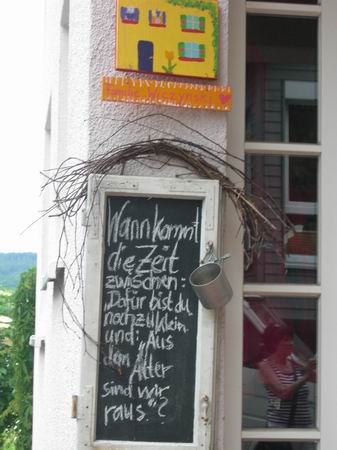 Familie
Wann kommt
die Zeit
zwischen:
Dafür bist du
noch zu klein
und: Aus
dem Alter
sind wir
raus."?